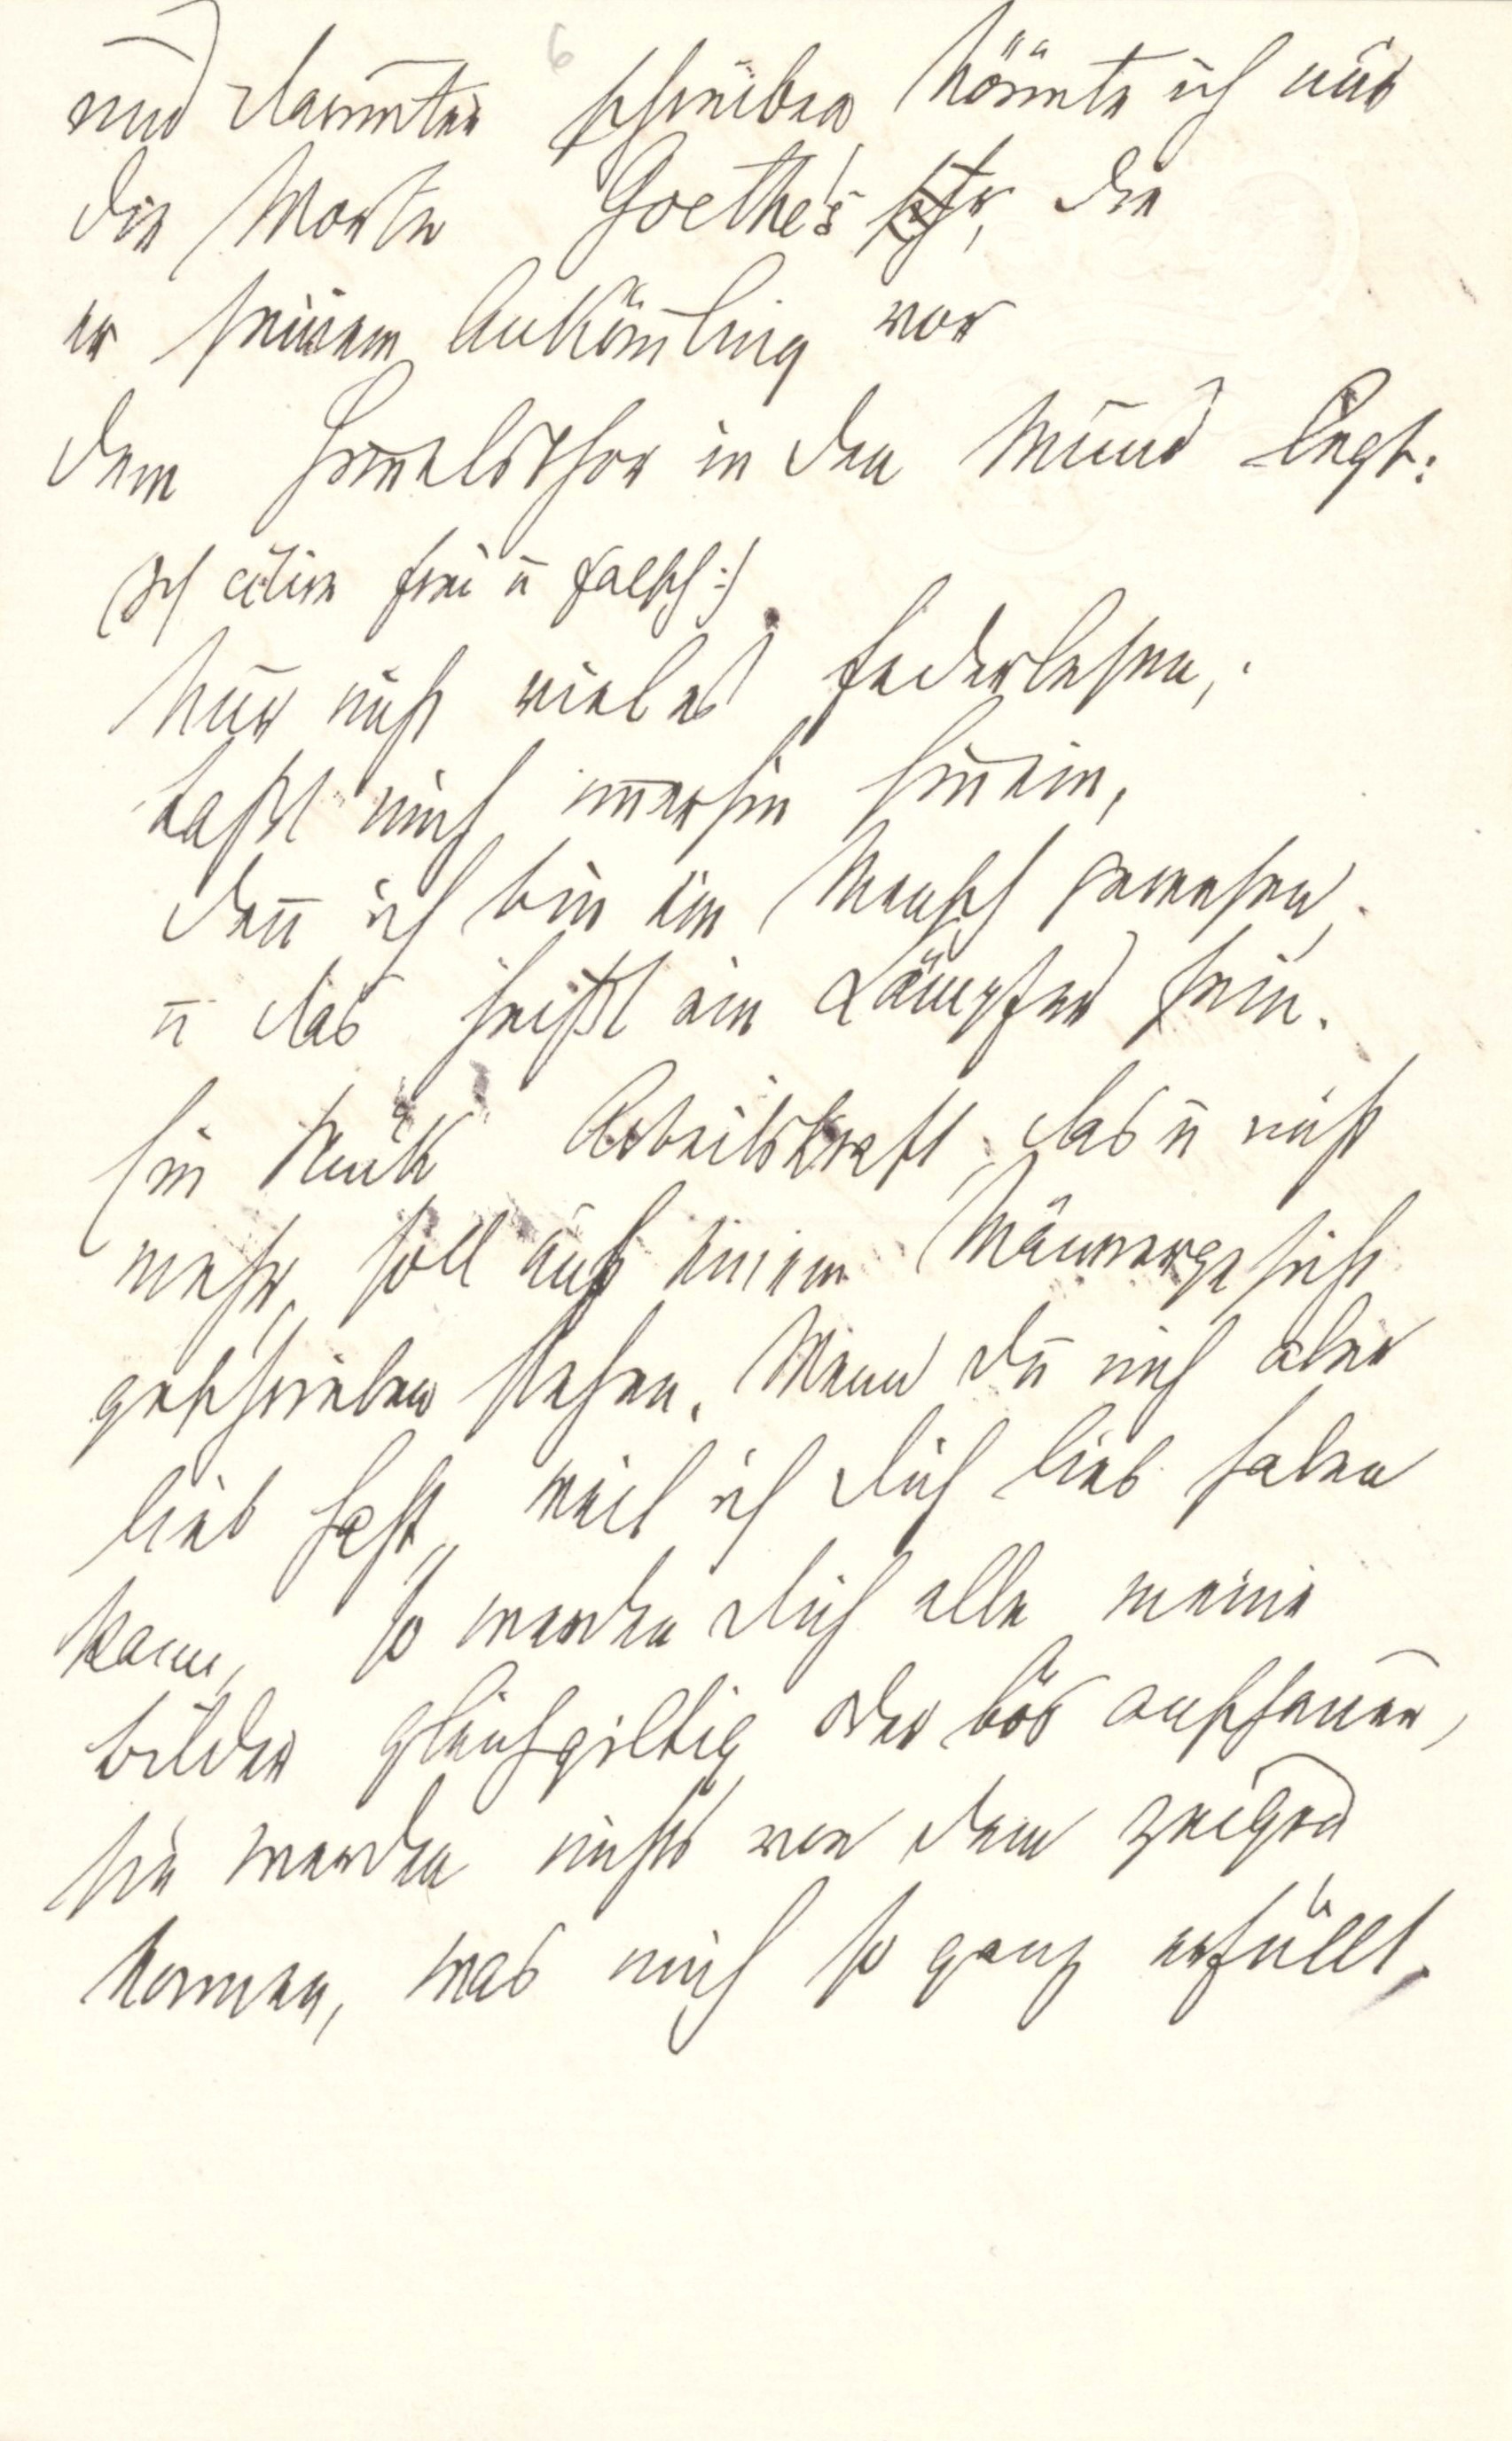 6
und darunter schreiben könnte ich nur
die Worte Goethe's, die
er seinem Ankömling vor
dem Him̅elsthor in den Mund legt:
(Ich citire frei u̅ falsch:)
Nur nicht vieles Federlesen,
Laßt mich im̅erhin hinein,
Den̅ ich bin ein Mensch gewesen,
u̅ das heißt ein Kämpfer sein.
Ein Stück Arbeitskraft, das u̅ nicht
mehr, soll auf einem Männergesicht
geschrieben stehen. Wenn du mich aber
lieb hast, weil ich dich lieb haben
kann, so werden dich alle meine
bilder gleichgiltig oder bös anschauen,
sie werden nichts von dem zeigen
können, was mich so ganz erfüllt.